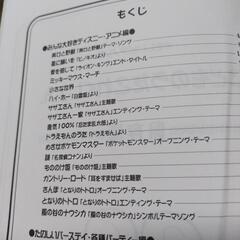 もくじ
●みんな大好きディズニー・アニメ編●
美女と野獣「美女と野獣」テーマ・ソング
星に願いを「ピノキオ」より
愛を感じて「ライオン・キング」エンド・タイトル
ミッキーマウス・マーチ
小さな世界
ハイ・ホー「白雪姫」より
サザエさん「サザエさん」主題歌
サザエさん一家「サザエさん」エンディング・テーマ
勇気100%「忍たま乱太郎」より
ドラえもんのうた「ドラえもん」より
めざせポケモンマスター「ポケットモンスター」オープニング・テーマ
謎「名探偵コナン」より
もののけ姫「もののけ姫」主題歌
カントリー・ロード「耳をすませば」主題歌
さんぽ「となりのトトロ」オープニング・テーマ
となりのトトロ「となりのトトロ」エンディング・テーマ
風の谷のナウシカ「風の谷のナウシカ」シンボルテーマソング
●たのしいバースデイ・各種パーティー編●